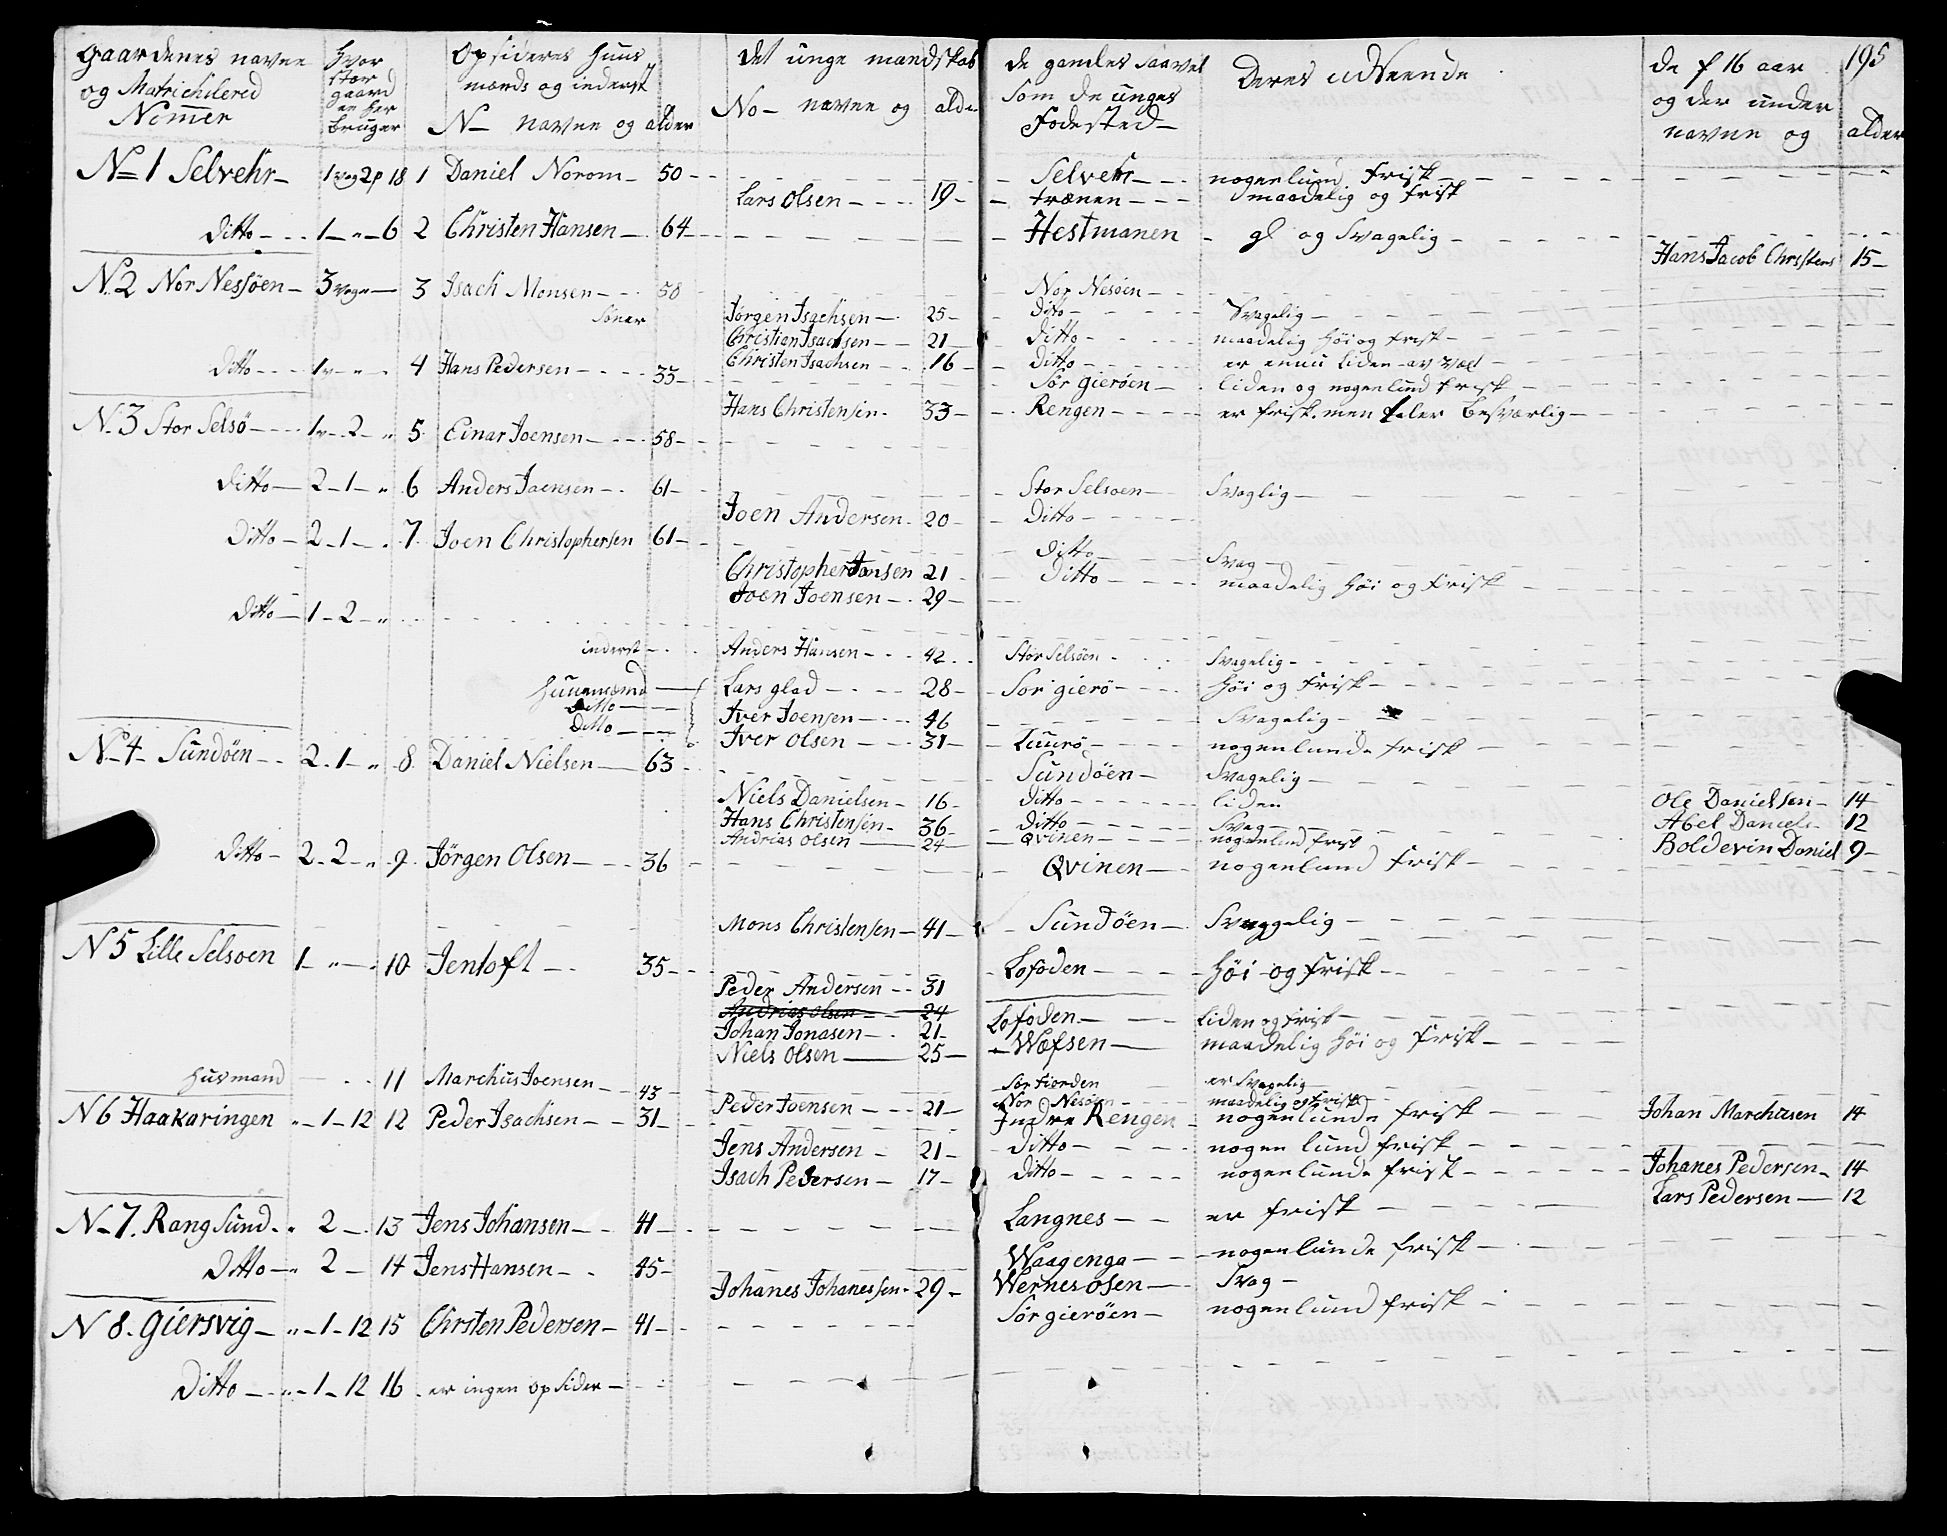 Gaardenes navne og Matrichulered Nomer | hvor stor gaard en her bruger | Opsideres huus mænds og inderst N— navne og alder | Det unge mandskab No— navne og alder | de gamles saavel som de unges Fødested— | Deres udseende | de f 16 aar og der under navne og alder | 195
N=1 Selvehr— 1 vog 2 p 18 1 Daniel Norom— 50 Selvehr— nogenlund frisk
Lars Olsen 19 trænen maadelig og frisk
Ditto 1 „ 6 2 Christen Hansen 64 Hestmanen gl og Svagelig
Hans Jacob Christens 15
N.2 Nor Nessøen 3 voge 3 Isach Monsen 58 Nor Nesøen
Sønner Jørgen Isachsen 25 Ditto Svagelig
Christian Isachsen 21 Ditto maadelig høi og frisk
Christen Isachsen 16 Ditto er enuu liden av væl
Ditto 1 v „ 4 Hans Pedersen 35 Sør gierøen liden og nogenlund frisk
Hans Christensen 33 Rengen er frisk. men besværlig
N.3 Stor Selsø 1 v 2 „ 5 Einar Joensen 58
Ditto 2-1 „ 6 Anders Jaensen 61 Stor Selsoen Svaglig
Joen Andersen 20 Ditto
Ditto 2-1 7 Joen Christophersen 61 Ditto Svag
Christopher Jonsen 21 Ditto maadelig høi og frisk
Joen Joensen 29
Ditto 1-2 „
inderst Anders Hansen 42 Stor Selsøen Svagelig
Huusmand Lars glad 28 Sor gierö høi og frisk
Ditto Iver Joensen 46 Svagelig
Ditto Iver Olsen 31 Luurö nogenlunde frisk
N-4- Sundöen 2-1 „ 8 Daniel Nielsen 63 Sundöen Svagelig
Niels Danielsen 16 Ditto liden Ole Danielsen 14
Hans Christensen 36 Ditto Svag Abel Daniels 12
Andrias Olsen 24 Qvinen nogenlund frisk Boldevin Daniel 9
Ditto 2-2 „ 9 Jörgen Olsen 36 Qvinen nogenlund frisk
Mons Christensen 41 Sundöen Svaggelig
N 5 Lille Selsoen 1 „ 10 Jentoft 35 Lofoden høi og frisk
Peder Andersen 31
Andrias Olsen 24 Lofoden liden og frisk
Johan Jonasen 21 Wæfsen maadelig høi og frisk
Niels Olsen 25
husmand 11 Marchus Joensen 43 Sør fiorden er Svagelig
Peder Joensen 21 Nor Nesøen maadelig og frisk
N 6 Haakaringen „-1-12 12 Peder Isachsen 31 Indre Rengen nogenlunde frisk Johan Marchusen 14
Jens Andersen 21 Ditto nogen lund frisk
Isach Pedersen 17 Ditto nogenlunde frisk Johanes Pedersen 14
Lars Pedersen 12
N-7. Rang Sund „ 2 13 Jens Johansen 41 Langnes er frisk
Ditto „ 2 14 Jens Hansen 45 Waagenga nogenlunde frisk
Johanes Johanessen 29 Wernes osen Svag
N 8. Giersvig „-1-12 15 Chrsten Pedersen 41 Sör gieröen nogenlund frisk
Ditto „-1-12 16 er ingen opsider